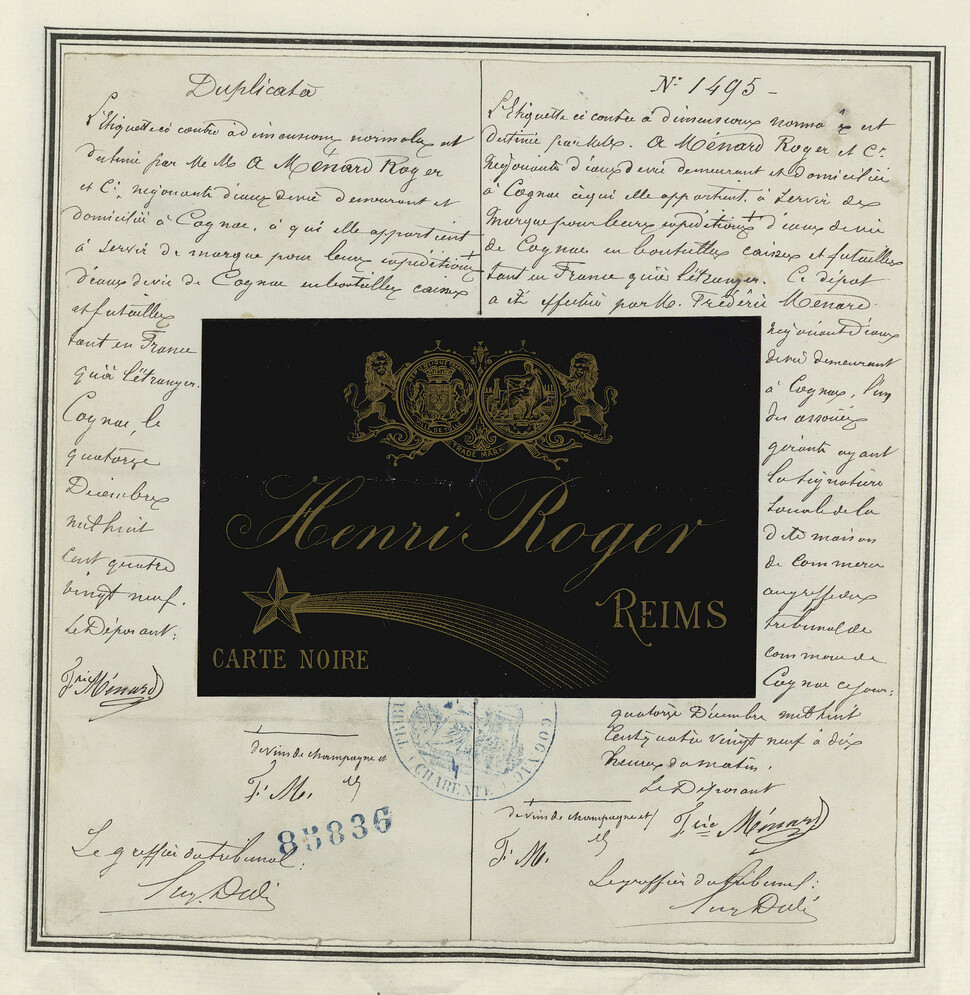 Duplicata
L'Etiquette ci contre à dimensions normales est
destinée par M.M. A Ménard Roger
et Cie négociants d'eaux de vie demeurant et
domiciliés à Cognac, à qui elle appartient
à servir de marque pour leurs expéditions
d'eaux de vie de Cognac en bouteilles caisses
et futailles
tant en France
qu'à l'étranger.
Cognac, le
quatorze
Décembre
mil huit
cent quatre
vingt neuf.
Le Déposant:
Fric Ménard
de vins de champagne et
F. M.
85836
Le greffier du tribunal:
No 1495 -
L'Etiquette ci contre à dimensions normales est
destinée par M.M. A Ménard Roger et Cie
Négociants d'eaux de vie demeurant et domiciliés
à Cognac à qui elle appartient, à servir de
marque pour leurs expéditions d'eaux de vie
de Cognac en bouteilles caisses et futailles
tant en France qu'à l'étranger. Ce dépot
a été effectué par M. Frédéric Ménard
négociant d'eaux
de vie demeurant
à Cognac, l'un
des associés
gérants ayant
la signature
sociale de la
dite maison
de commerce
au greffe du
tribunal de
commerce de
Cognac ce jour:
quatorze Décembre mil huit
cent quatre vingt neuf à dix
heures du matin.
Le Déposant
Fric Ménard
de vins de champagne et
F. M.
Le greffier du tribunal:
TRADE MARK
Henri Roger
REIMS
CARTE NOIRE
COGNAC
CHARENTE